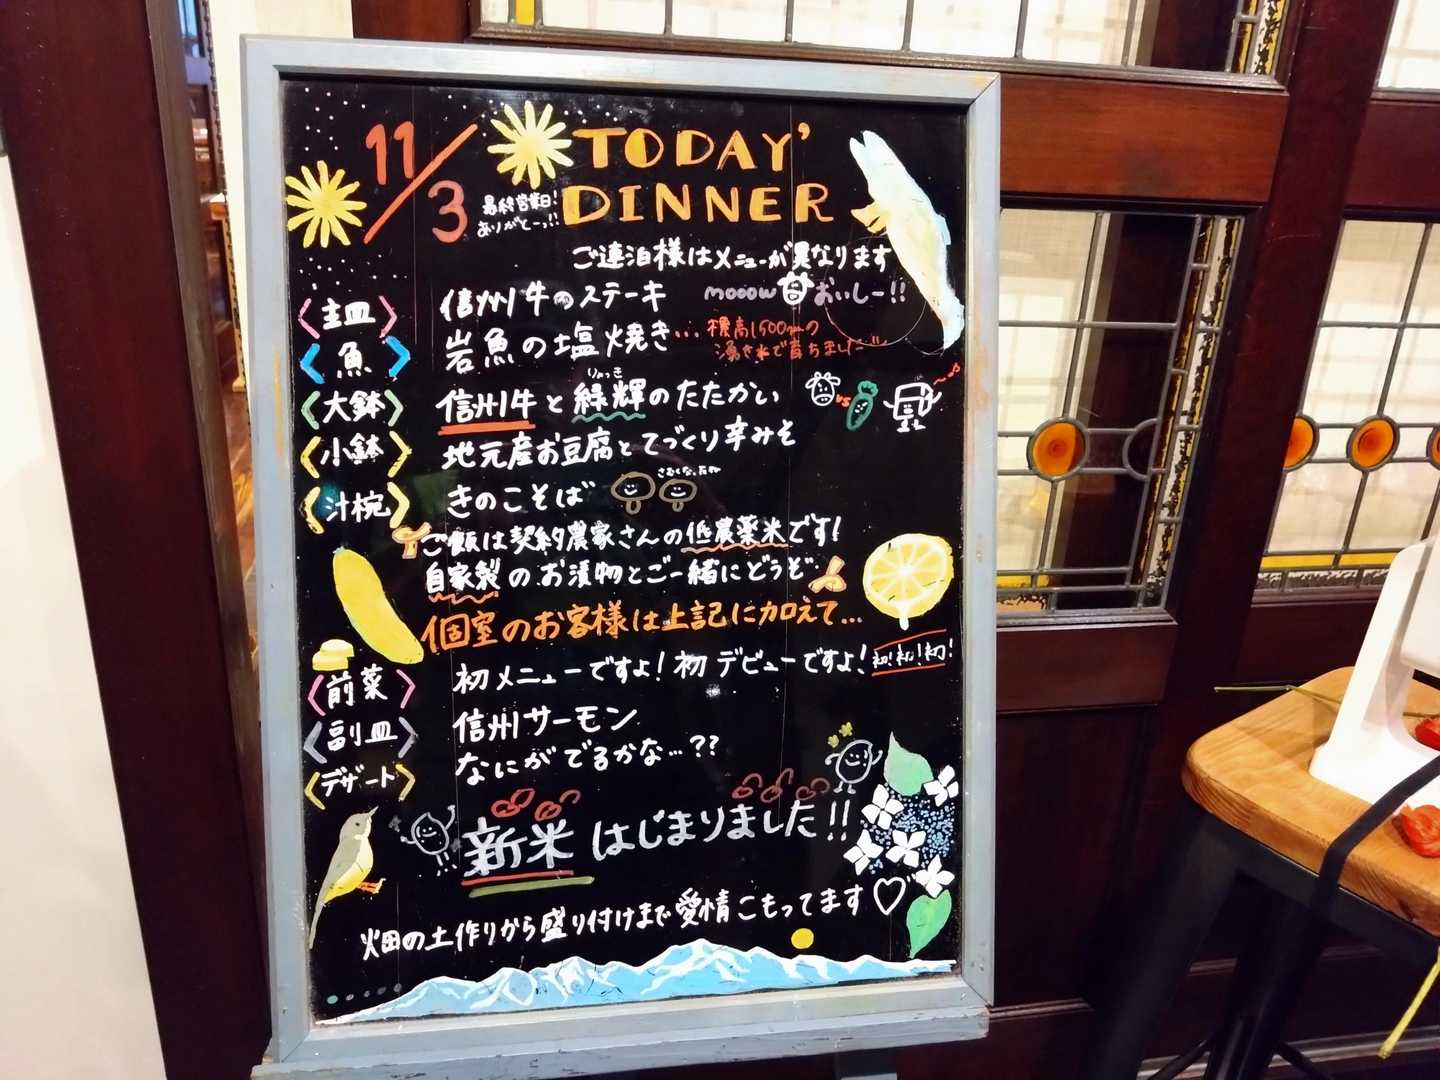 11/3
TODAY'
DINNER
最終営業日!
ありがとーっ!!
ご連泊様はメニューが異なります
〈主皿〉 信州牛のステーキ
mooow おいしー!!
〈魚〉 岩魚の塩焼き…
標高1500mの
湧き水で育ちました
〈大鉢〉 信州牛と緑輝のたたかい
りょっき
vs
〈小鉢〉 地元産お豆腐とてづくり辛みそ
〈汁椀〉 きのこそば
ご飯は契約農家さんの低農薬米です!
自家製のお漬物とご一緒にどうぞ
個室のお客様は上記に加えて…
〈前菜〉 初メニューですよ!初デビューですよ!
初!初!初!
〈副皿〉 信州サーモン
〈デザート〉 なにがでるかな…??
新米はじまりました!!
畑の土作りから盛り付けまで愛情こもってます♡